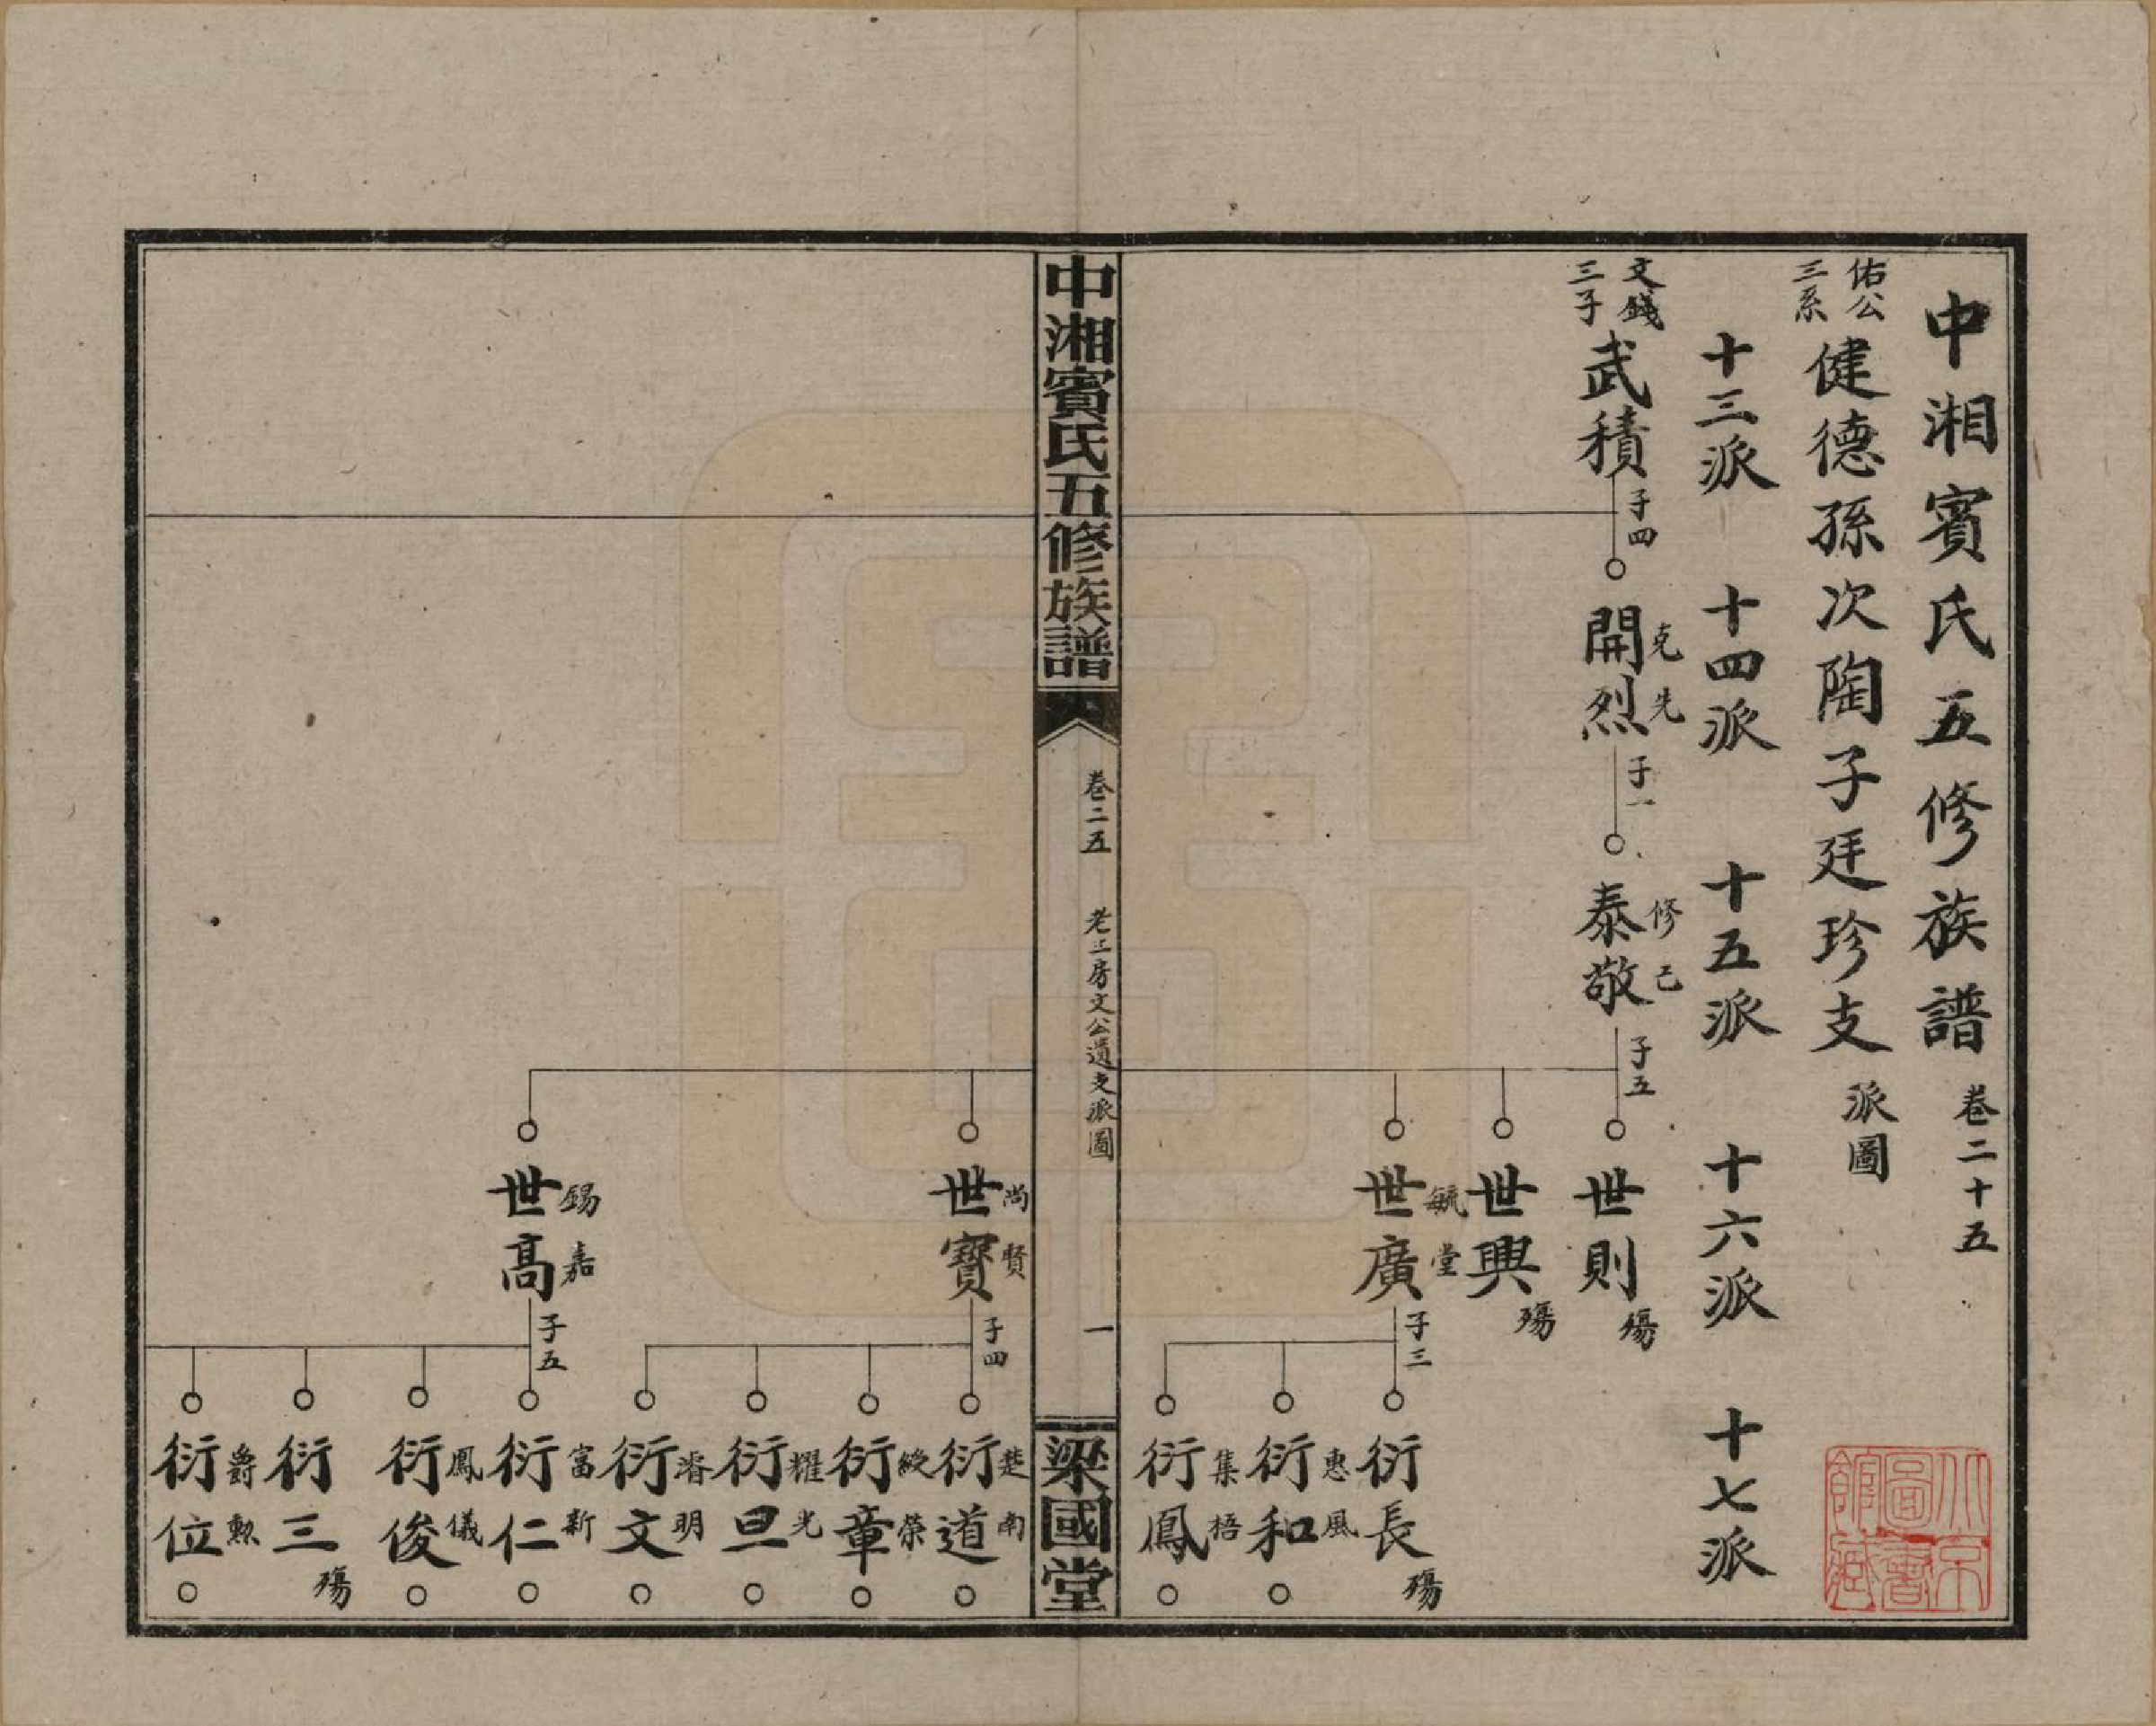 中湘賓氏五修族譜 卷二十五
佑公三系 健德孫次陶子廷珍支 派圖
十三派 十四派 十五派 十六派 十七派
文錢三子 武積 子四
開烈 克先 子一
泰敬 修己 子五
世則 殤
世興 殤
世廣 毓堂 子三
衍長 殤
衍和 惠風
衍鳳 集梧
中湘賓氏五修族譜
卷二五
老三房文公遺支派圖
一
梁國堂
世寶 尚賢 子四
衍道 楚南
衍章 綬榮
衍旦 耀光
衍文 濬明
世高 錫嘉 子五
衍仁 富新
衍俊 鳳儀
衍三 殤
衍位 爵勲
北京
圖書
館藏